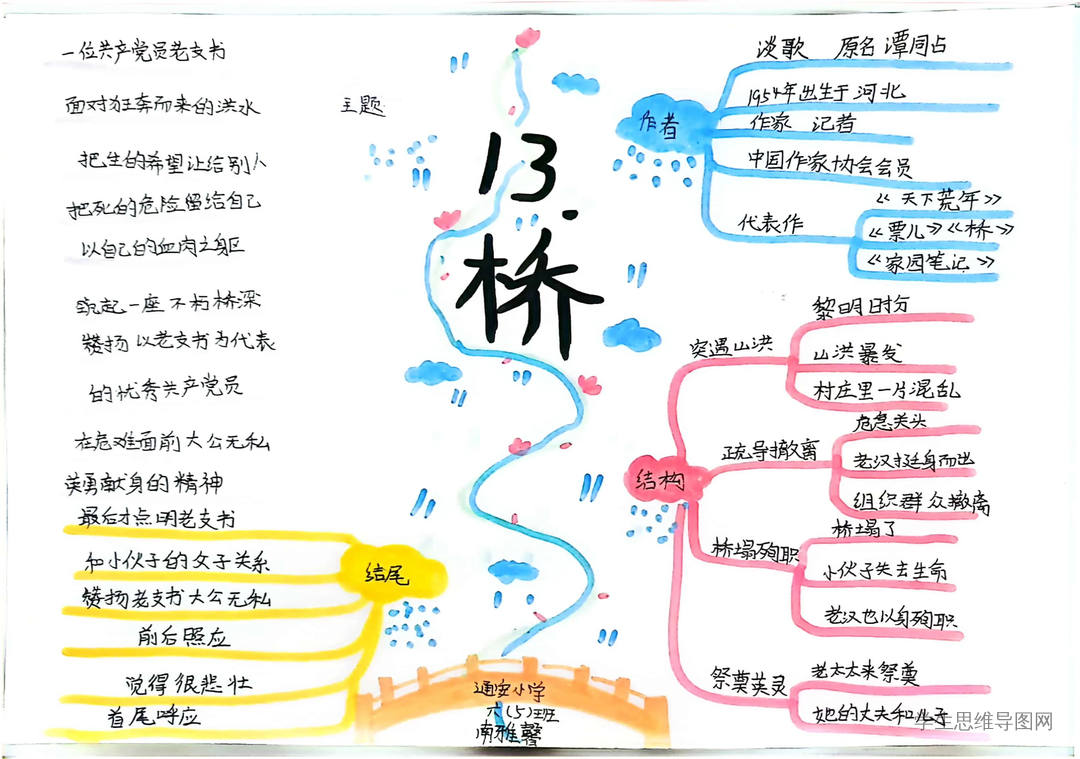 13.
桥
主题
一位共产党员老支书
面对狂奔而来的洪水
把生的希望让给别人
把死的危险留给自己
以自己的血肉之躯
筑起一座不朽桥梁
赞扬以老支书为代表
的优秀共产党员
在危难面前大公无私
英勇献身的精神
作者
淡歌 原名 潭同占
1954年出生于河北
作家 记者
中国作家协会会员
代表作
《天下荒年》
《票儿》《桥》
《家园笔记》
结构
突遇山洪
黎明时分
山洪暴发
村庄里一片混乱
疏导撤离
危急关头
老汉挺身而出
组织群众撤离
桥塌殉职
桥塌了
小伙子失去生命
老汉也以身殉职
祭奠英灵
老太太来祭奠
她的丈夫和儿子
结尾
最后才点明老支书
和小伙子的父子关系
赞扬老支书大公无私
前后照应
说得很悲壮
首尾呼应
通安小学
六(5)班
南雅馨
学生思维导图网